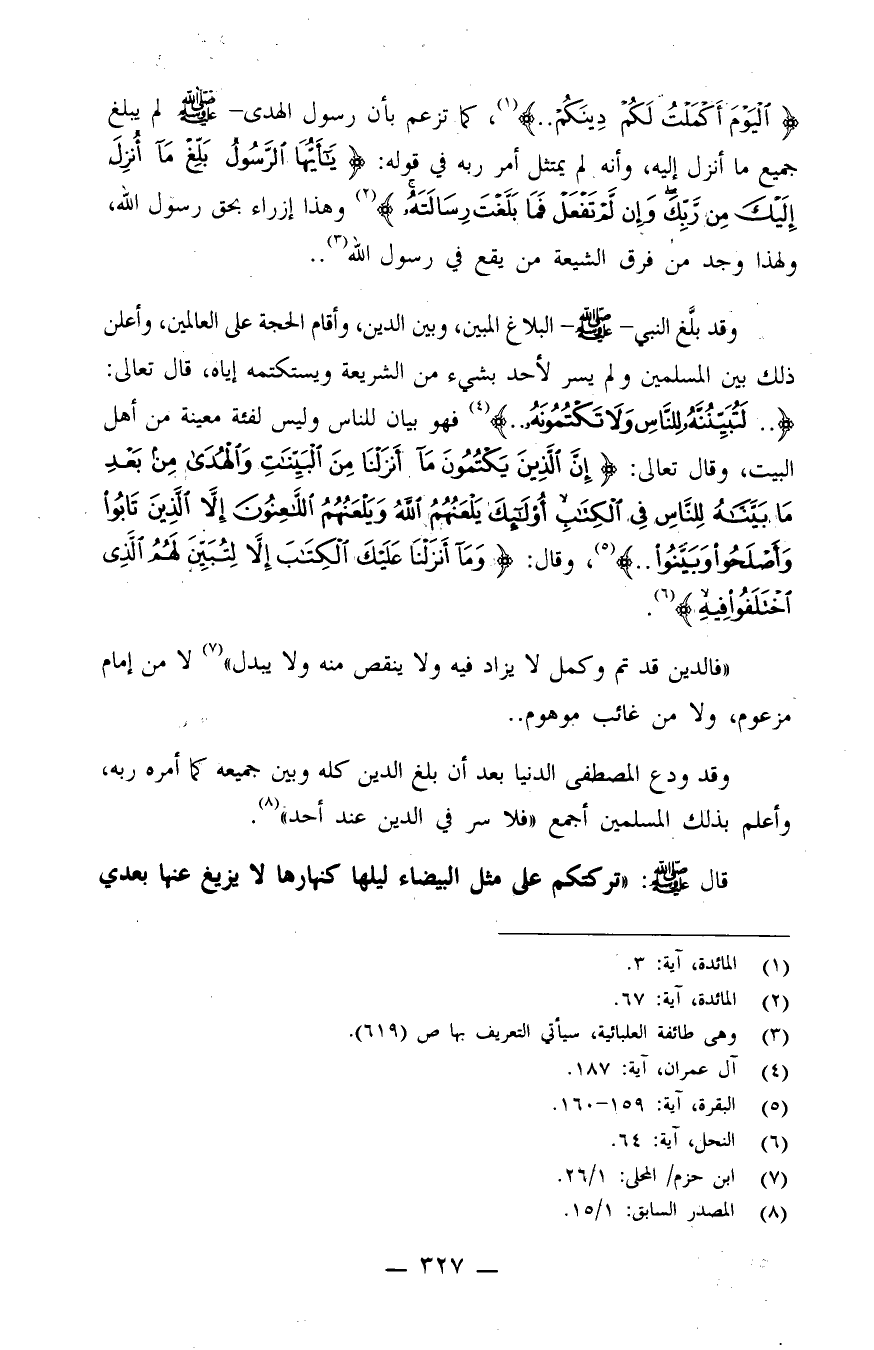 ﴿ ٱلْيَوْمَ أَكْمَلْتُ لَكُمْ دِينَكُمْ..﴾(١)، كما تزعم بأن رسول الهدى– ﷺ لم يبلغ
جميع ما أنزل إليه، وأنه لم يمتثل أمر ربه في قوله: ﴿ يَـٰٓأَيُّهَا ٱلرَّسُولُ بَلِّغْ مَآ أُنزِلَ
إِلَيْكَ مِن رَّبِّكَ ۖ وَإِن لَّمْ تَفْعَلْ فَمَا بَلَّغْتَ رِسَالَتَهُۥ ۚ ﴾(٢) وهذا إزراء بحق رسول الله،
ولهذا وجد من فرق الشيعة من يقع في رسول الله(٣)..
وقد بلَّغ النبي– ﷺ– البلاغ المبين، وبين الدين، وأقام الحجة على العالمين، وأعلن
ذلك بين المسلمين ولم يسر لأحد بشيء من الشريعة ويستكتمه إياه، قال تعالى:
﴿.. لَتُبَيِّنُنَّهُۥ لِلنَّاسِ وَلَا تَكْتُمُونَهُۥ..﴾(٤) فهو بيان للناس وليس لفئة معينة من أهل
البيت، وقال تعالى: ﴿ إِنَّ ٱلَّذِينَ يَكْتُمُونَ مَآ أَنزَلْنَا مِنَ ٱلْبَيِّنَـٰتِ وَٱلْهُدَىٰ مِنۢ بَعْدِ
مَا بَيَّنَّـٰهُ لِلنَّاسِ فِى ٱلْكِتَـٰبِ ۙ أُو۟لَـٰٓئِكَ يَلْعَنُهُمُ ٱللَّهُ وَيَلْعَنُهُمُ ٱللَّـٰعِنُونَ إِلَّا ٱلَّذِينَ تَابُوا۟
وَأَصْلَحُوا۟ وَبَيَّنُوا۟..﴾(٥)، وقال: ﴿ وَمَآ أَنزَلْنَا عَلَيْكَ ٱلْكِتَـٰبَ إِلَّا لِتُبَيِّنَ لَهُمُ ٱلَّذِى
ٱخْتَلَفُوا۟ فِيهِ ۙ ﴾(٦).
«فالدين قد تم وكمل لا يزاد فيه ولا ينقص منه ولا يبدل»(٧) لا من إمام
مزعوم، ولا من غائب موهوم..
وقد ودع المصطفى الدنيا بعد أن بلغ الدين كله وبين جميعه كما أمره ربه،
وأعلم بذلك المسلمين أجمع «فلا سر في الدين عند أحد»(٨).
قال ﷺ: «تركتكم على مثل البيضاء ليلها كنهارها لا يزيغ عنها بعدي
(١) المائدة، آية: ٣.
(٢) المائدة، آية: ٦٧.
(٣) وهى طائفة العلبائية، سيأتي التعريف بها ص (٦١٩).
(٤) آل عمران، آية: ١٨٧.
(٥) البقرة، آية: ١٥٩–١٦٠.
(٦) النحل، آية: ٦٤.
(٧) ابن حزم/ المحلى: ٢٦/١.
(٨) المصدر السابق: ١٥/١.
— ٣٢٧ —